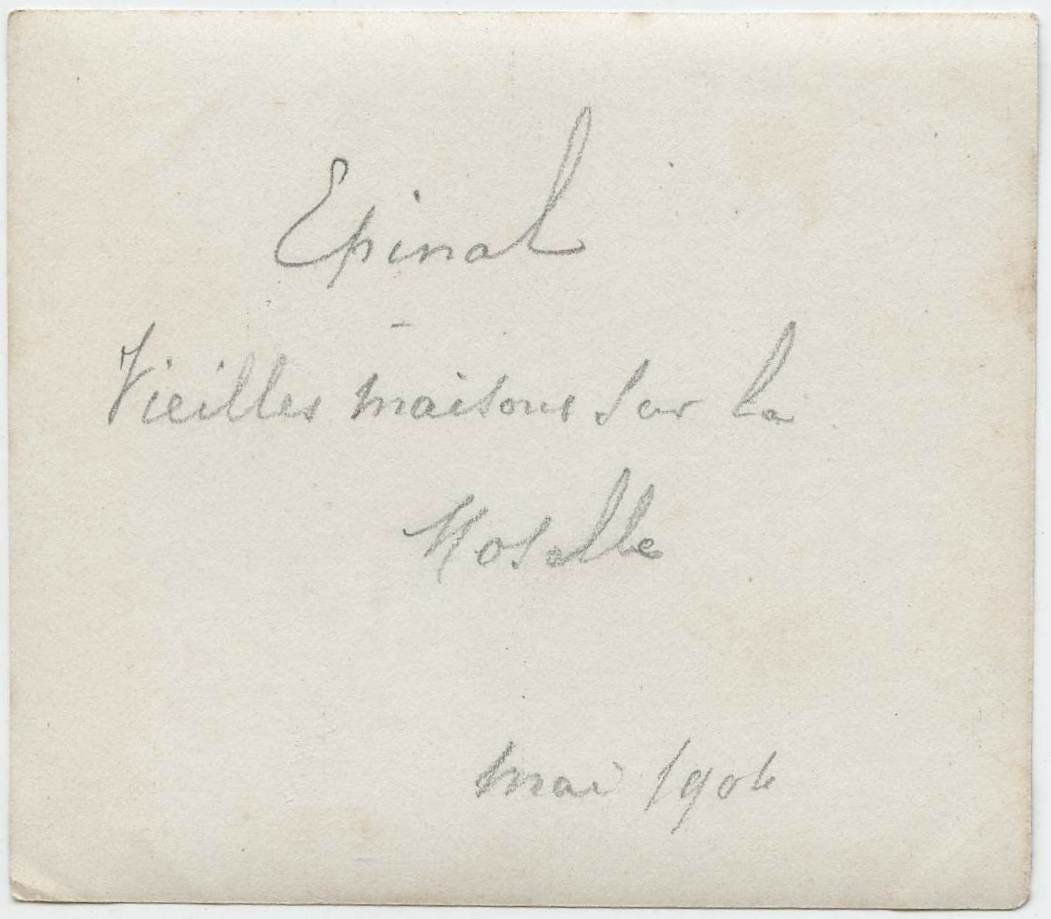 Epinal
Vieilles maisons sur la
Moselle
mai 1904